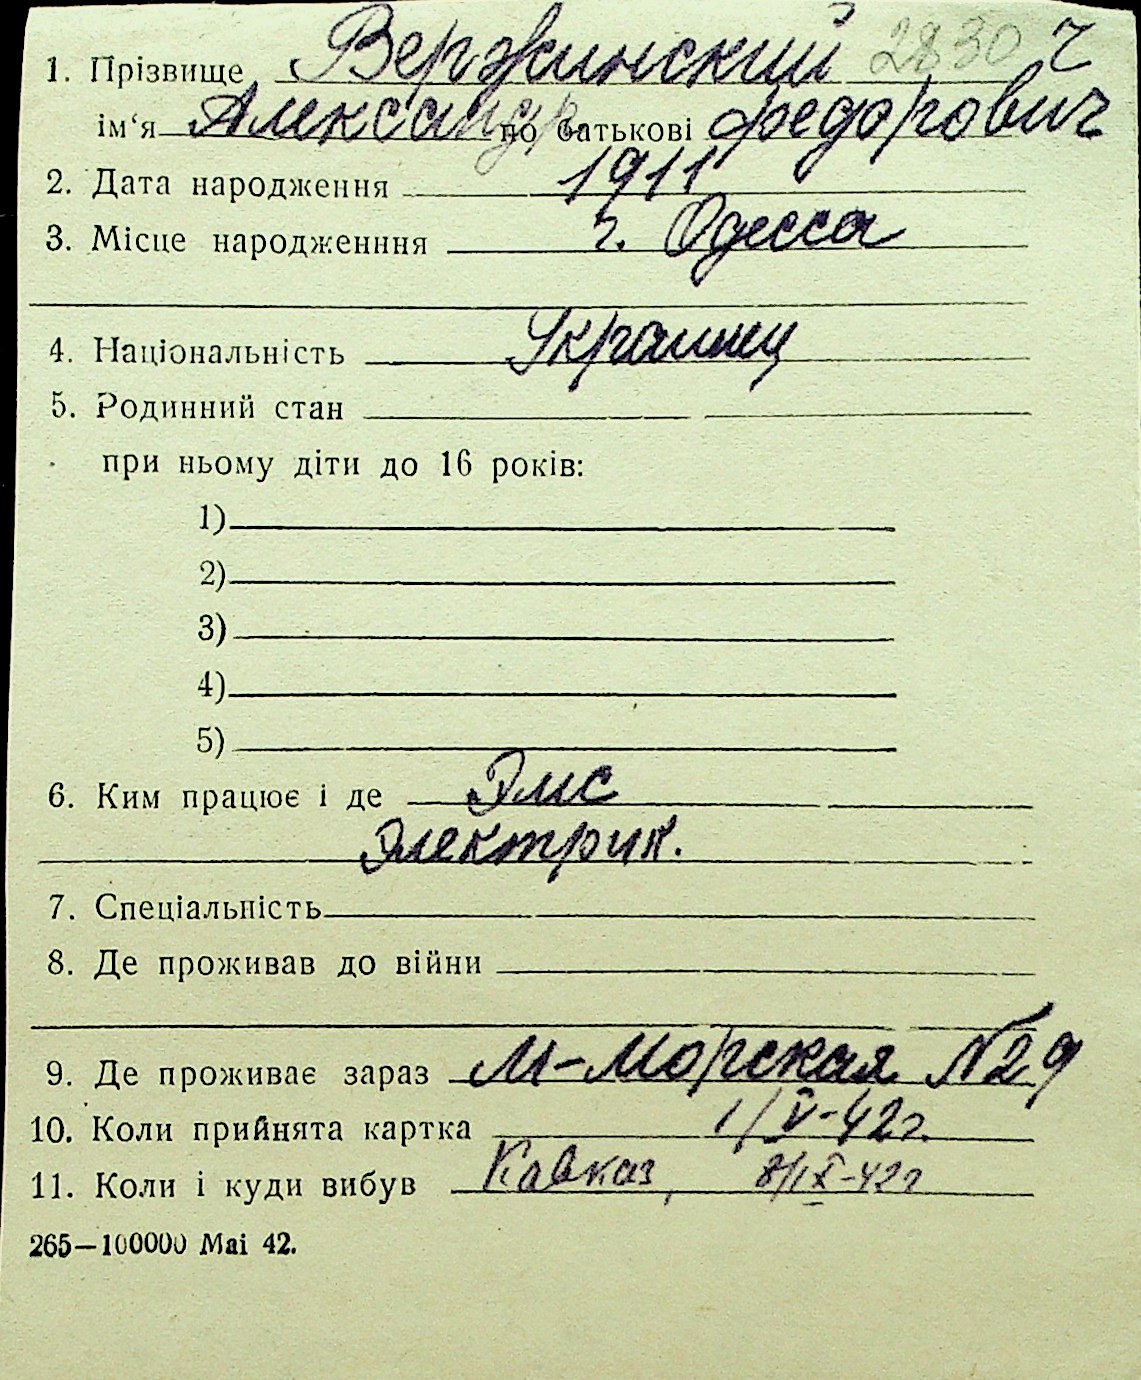 1. Прізвище Вержинский 2830 Ч
ім‘я Александр по батькові Федорович
2. Дата народження 1911
3. Місце народженння г. Одесса
4. Національність Украинец
5. Родинний стан
при ньому діти до 16 років:
1)
2)
3)
4)
5)
6. Ким працює і де Эмс
Электрик.
7. Спеціальність
8. Де проживав до війни
9. Де проживає зараз М-Морская №29
10. Коли прийнята картка 1/V-42г.
11. Коли і куди вибув Кавказ, 8/IX-42г
265—100000 Mai 42.